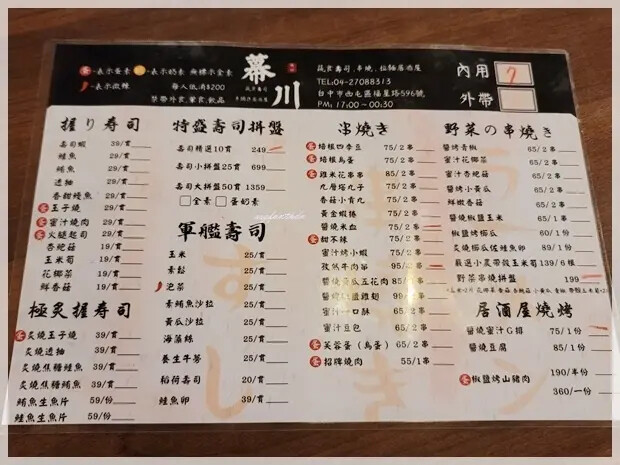 蛋-表示蛋素 奶-表示奶素 無標示全素
-表示微辣 每人低消$200
禁帶外食,葷食,飲品
幕川
蔬食壽司
蔬食壽司,串燒,拉麵居酒屋
TEL:04-27088313
台中市西屯區福星路596號
PM: 17:00~00:30
內用 7
外帶
握り壽司
壽司蝦 39/貫
鮭魚 39/貫
鮪魚 39/貫
透抽 39/貫
香甜鰻魚 29/貫
蛋 玉子燒 39/貫
蛋 蜜汁燒肉 29/貫
蛋 火腿起司 29/貫
杏鮑菇 19/貫
玉米筍 19/貫
花椰菜 19/貫
鮮香菇 19/貫
極炙握壽司
蛋 炙燒玉子燒 39/貫
炙燒透抽 39/貫
炙燒焦糖鮭魚 39/貫
炙燒焦糖鮪魚 39/貫
鮪魚生魚片 59/份
鮭魚生魚片 59/份
特盛壽司拼盤
壽司精選10貫 249
壽司小拼盤25貫 699
壽司大拼盤50貫 1359
□全素 □蛋奶素
軍艦壽司
玉米 25/貫
素鬆 25/貫
泡菜 25/貫
素鮪魚沙拉 25/貫
黃瓜沙拉 25/貫
海藻絲 25/貫
養生牛蒡 25/貫
稻荷壽司 20/貫
鮭魚卵 39/貫
串燒き
蛋 培根四季豆 75/2串
蛋 培根鳥蛋 75/2串
蛋 雞米花串串 85/2串
九層塔丸子 65/2串
香菇小貢丸 65/2串
黃金蝦捲 75/2串
醬燒米血 75/2串
蛋 甜不辣 55/2串
蜜汁烤小蝦 75/2串
孜然牛肉串 95/2串
99/2串
65/2串
蜜汁豆包 65/2串
蛋 芙蓉蛋(鳥蛋) 65/2串
蛋 招牌燒肉 55/1串
野菜の串燒き
醬燒青椒 65/2串
蜜汁花椰菜 65/2串
蜜汁杏鮑菇 65/2串
醬烤小黃瓜 65/2串
鮮嫩香菇 65/2串
醬燒椒鹽玉米 65/1串
椒鹽烤櫛瓜 60/1份
炙燒櫛瓜佐鮭魚卵 89/1份
嚴選小農帶殼玉米筍 139/6根
野菜串燒拼盤 199
居酒屋燒烤
醬燒蜜汁G排 75/1份
醬燒豆腐 85/1份
蛋 椒鹽烤山豬肉 190/半份
360/一份